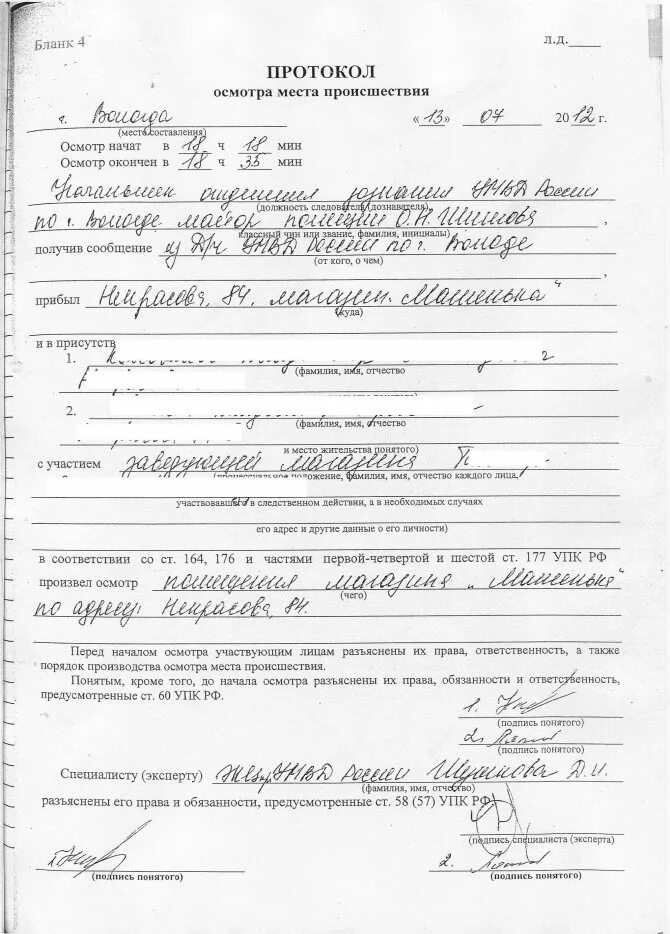 Бланк 4
Л.Д.____
ПРОТОКОЛ
осмотра места происшествия
г. Вологда «13» 07 2012 г.
(место составления)
Осмотр начат в 18 ч 18 мин
Осмотр окончен в 18 ч 35 мин
Начальник отделения дознания УМВД России
(должность следователя (дознавателя),
по г. Вологде майор полиции О.Н.
классный чин или звание, фамилия, инициалы)
получив сообщение из Д/ч УМВД России по г. Вологде
(от кого, о чем)
прибыл Некрасова, 84, магазин „Машенька"
(куда)
и в присутств
1.
(фамилия, имя, отчество
2.
(фамилия, имя, отчество
и место жительства понятого)
с участием заведующей магазина П
(процессуальное положение, фамилия, имя, отчество каждого лица,
участвовавшего в следственном действии, а в необходимых случаях
его адрес и другие данные о его личности)
в соответствии со ст. 164, 176 и частями первой-четвертой и шестой ст. 177 УПК РФ
произвел осмотр помещения магазина „Машенька"
(чего)
по адресу: Некрасова, 84.
Перед началом осмотра участвующим лицам разъяснены их права, ответственность, а также
порядок производства осмотра места происшествия.
Понятым, кроме того, до начала осмотра разъяснены их права, обязанности и ответственность,
предусмотренные ст. 60 УПК РФ.
1.
(подпись понятого)
2.
(подпись понятого)
Специалисту (эксперту) УМВД России Д.И.
(фамилия, имя, отчество)
разъяснены его права и обязанности, предусмотренные ст. 58 (57) УПК РФ
(подпись специалиста (эксперта)
1. 2.
(подпись понятого) (подпись понятого)